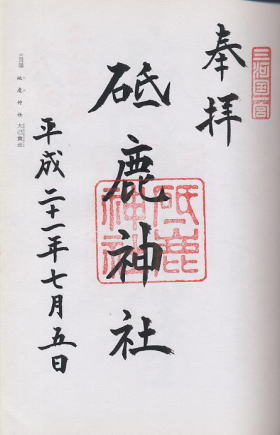 三河国一宮
奉拝
砥鹿神社
砥鹿神社
平成二十一年七月五日
砥鹿神社